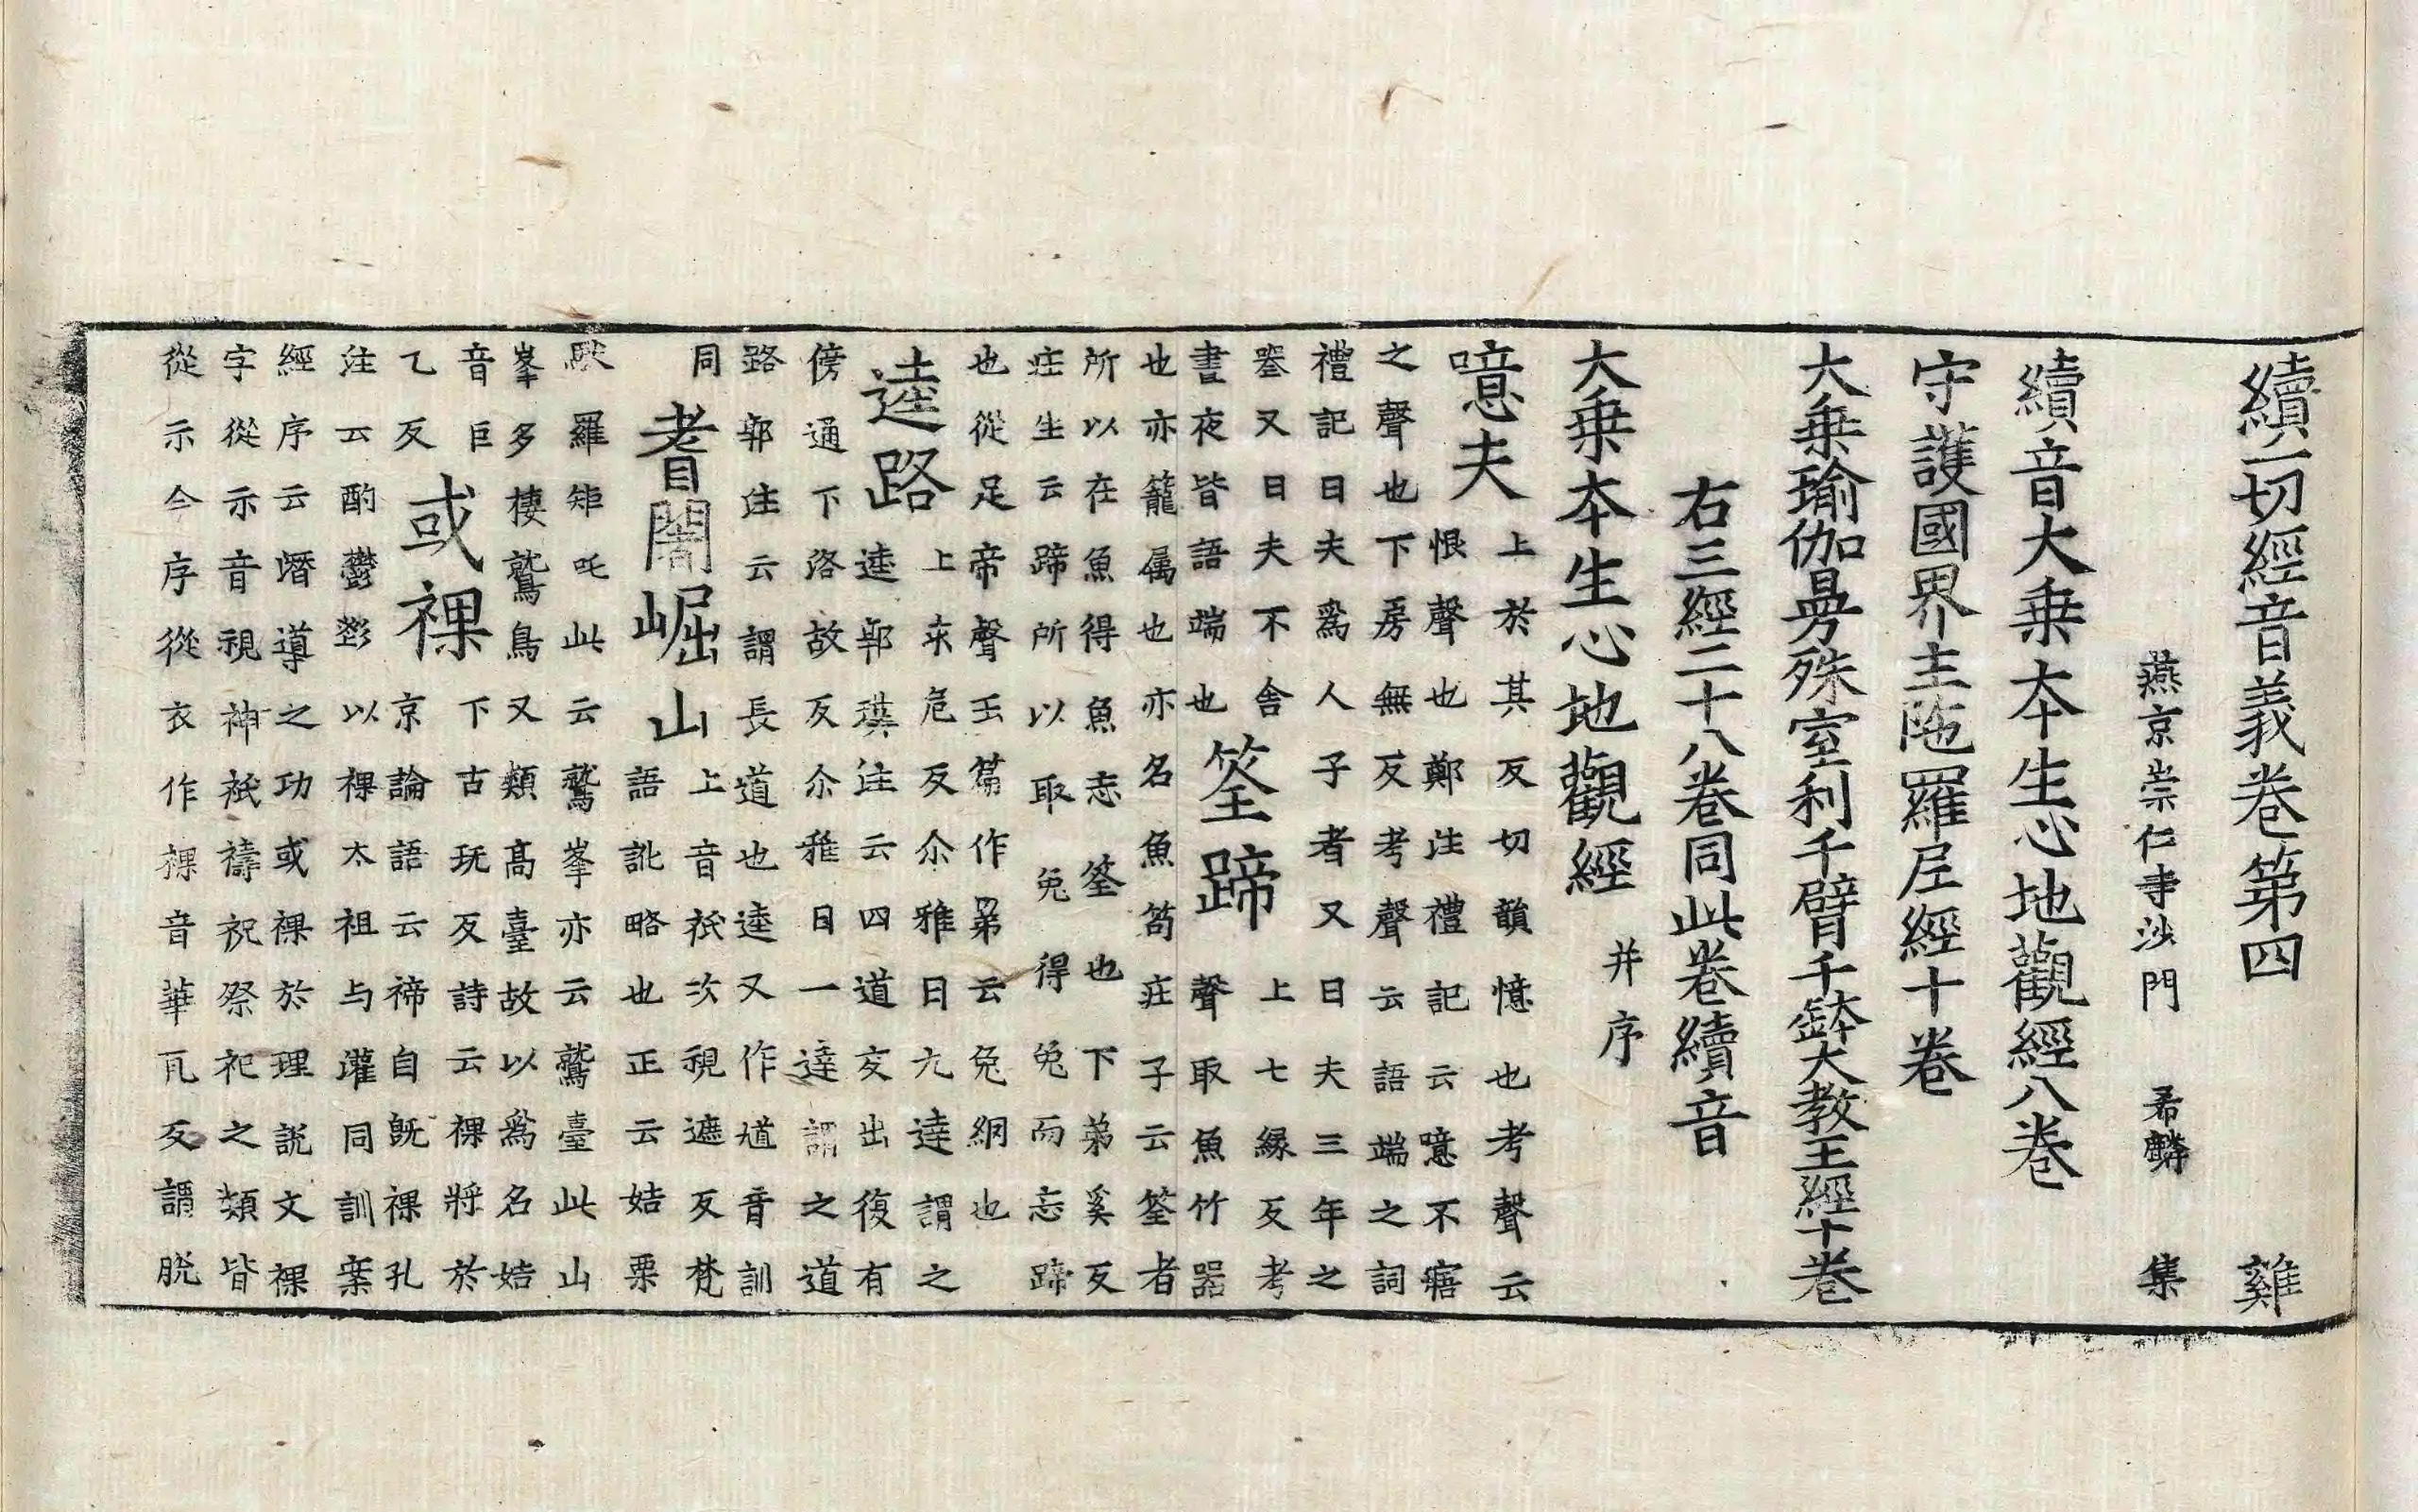 續一切經音義卷第四 雞
燕京崇仁寺沙門 希麟 集
續音大乗本生心地觀經八卷
守護國界主陁羅尼經十卷
大乗瑜伽曼殊室利千臂千鉢大教王經十卷
右三經二十八卷同此卷續音
大乗本生心地觀經 并序
噫夫 上於其反切韻憶也考聲云
恨聲也鄭注禮記云噫不寤
之聲也下房無反考聲云語端之詞
禮記曰夫爲人子者又曰夫三年之
喪又曰夫不舍
晝夜皆語端也 筌蹄 上七緣反考
聲取魚竹器
也亦籠属也亦名魚笱莊子云筌者
所以在魚得魚忘筌也下弟奚反
莊生云蹄所以取兔得兔而忘蹄
也從足帝聲玉篇作第云兔網也
逵路 上求危反尒雅曰九逵謂之
逵郭璞注云四道交出復有
傍通下洛故反尒雅曰一達謂之道
路郭注云謂長道也逵又作馗音訓
同 耆闍崛山 上音祇次視遮反梵
語訛略也正云姞栗
馱羅矩吒此云鷲峯亦云鷲臺此山
峯多棲鷲鳥又類高臺故以爲名姞
音巨
乙反 或祼 下古玩反詩云祼將於
京論語云禘自既祼孔
注云酌鬱鬯以祼太祖与灌同訓案
經序云㬱導之功或祼於理説文祼
字從示音視神祇禱祝祭祀之類皆
從示今序從衣作裸音華瓦反謂脱